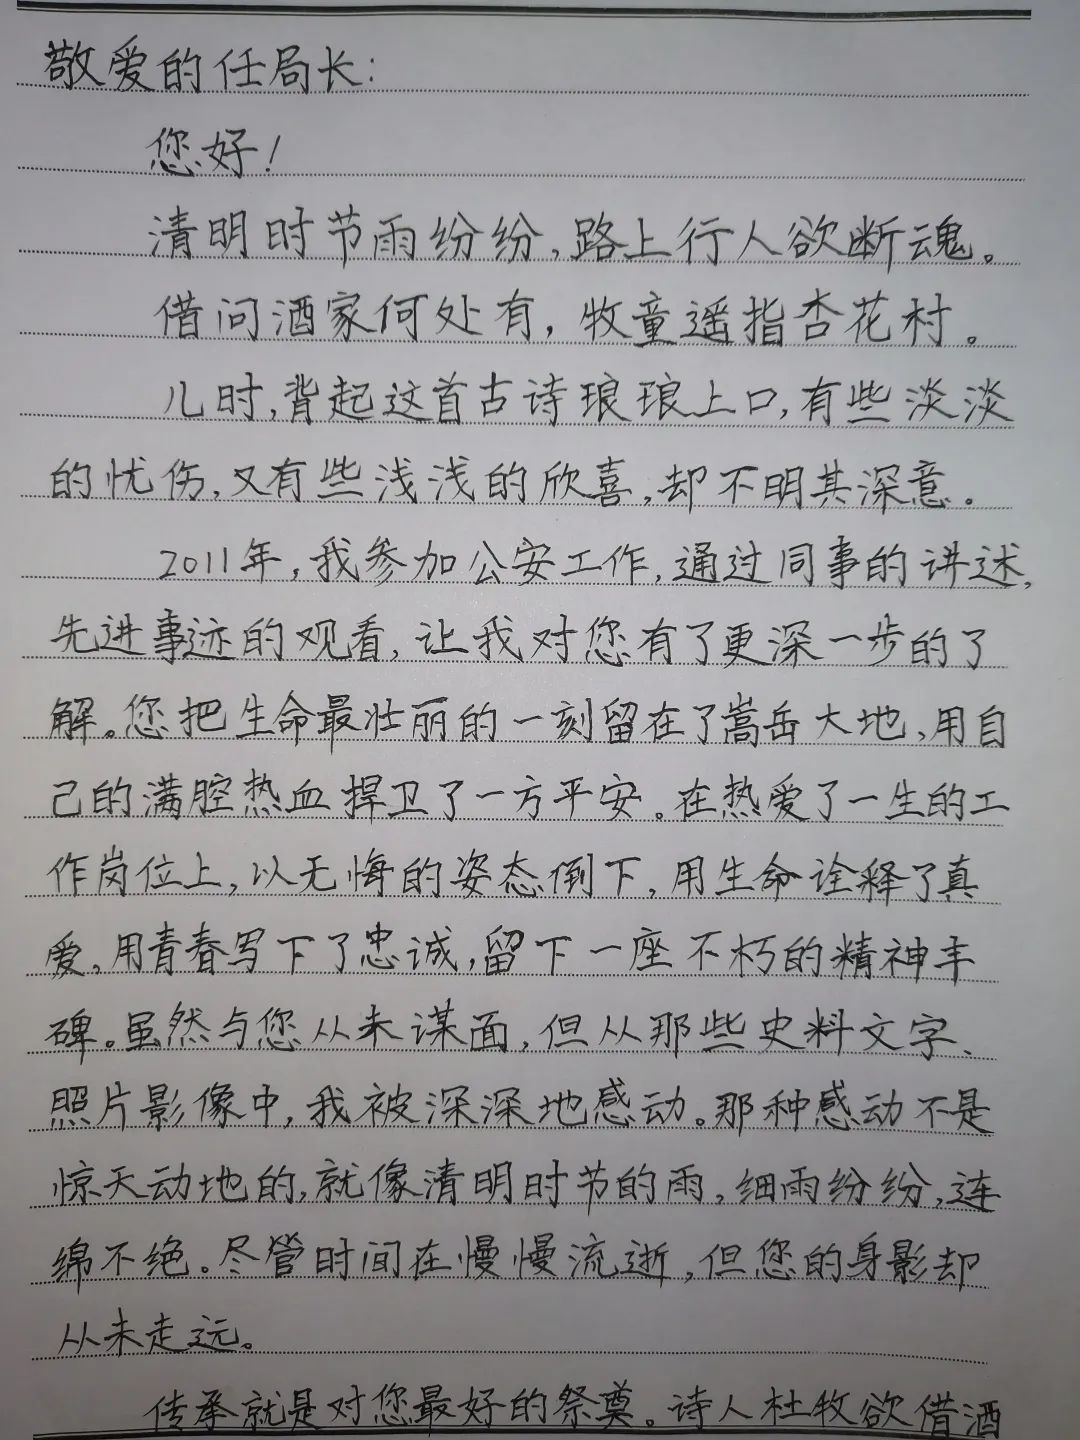 敬爱的任局长:
您好!
清明时节雨纷纷,路上行人欲断魂。
借问酒家何处有,牧童遥指杏花村。
儿时,背起这首古诗琅琅上口,有些淡淡
的忧伤,又有些浅浅的欣喜,却不明其深意。
2011年,我参加公安工作,通过同事的讲述,
先进事迹的观看,让我对您有了更深一步的了
解。您把生命最壮丽的一刻留在了嵩岳大地,用自
己的满腔热血捍卫了一方平安。在热爱了一生的工
作岗位上,以无悔的姿态倒下,用生命诠释了真
爱,用青春写下了忠诚,留下一座不朽的精神丰
碑。虽然与您从未谋面,但从那些史料文字、
照片影像中,我被深深地感动。那种感动不是
惊天动地的,就像清明时节的雨,细雨纷纷,连
绵不绝。尽管时间在慢慢流逝,但您的身影却
从未走远。
传承就是对您最好的祭奠。诗人杜牧欲借酒